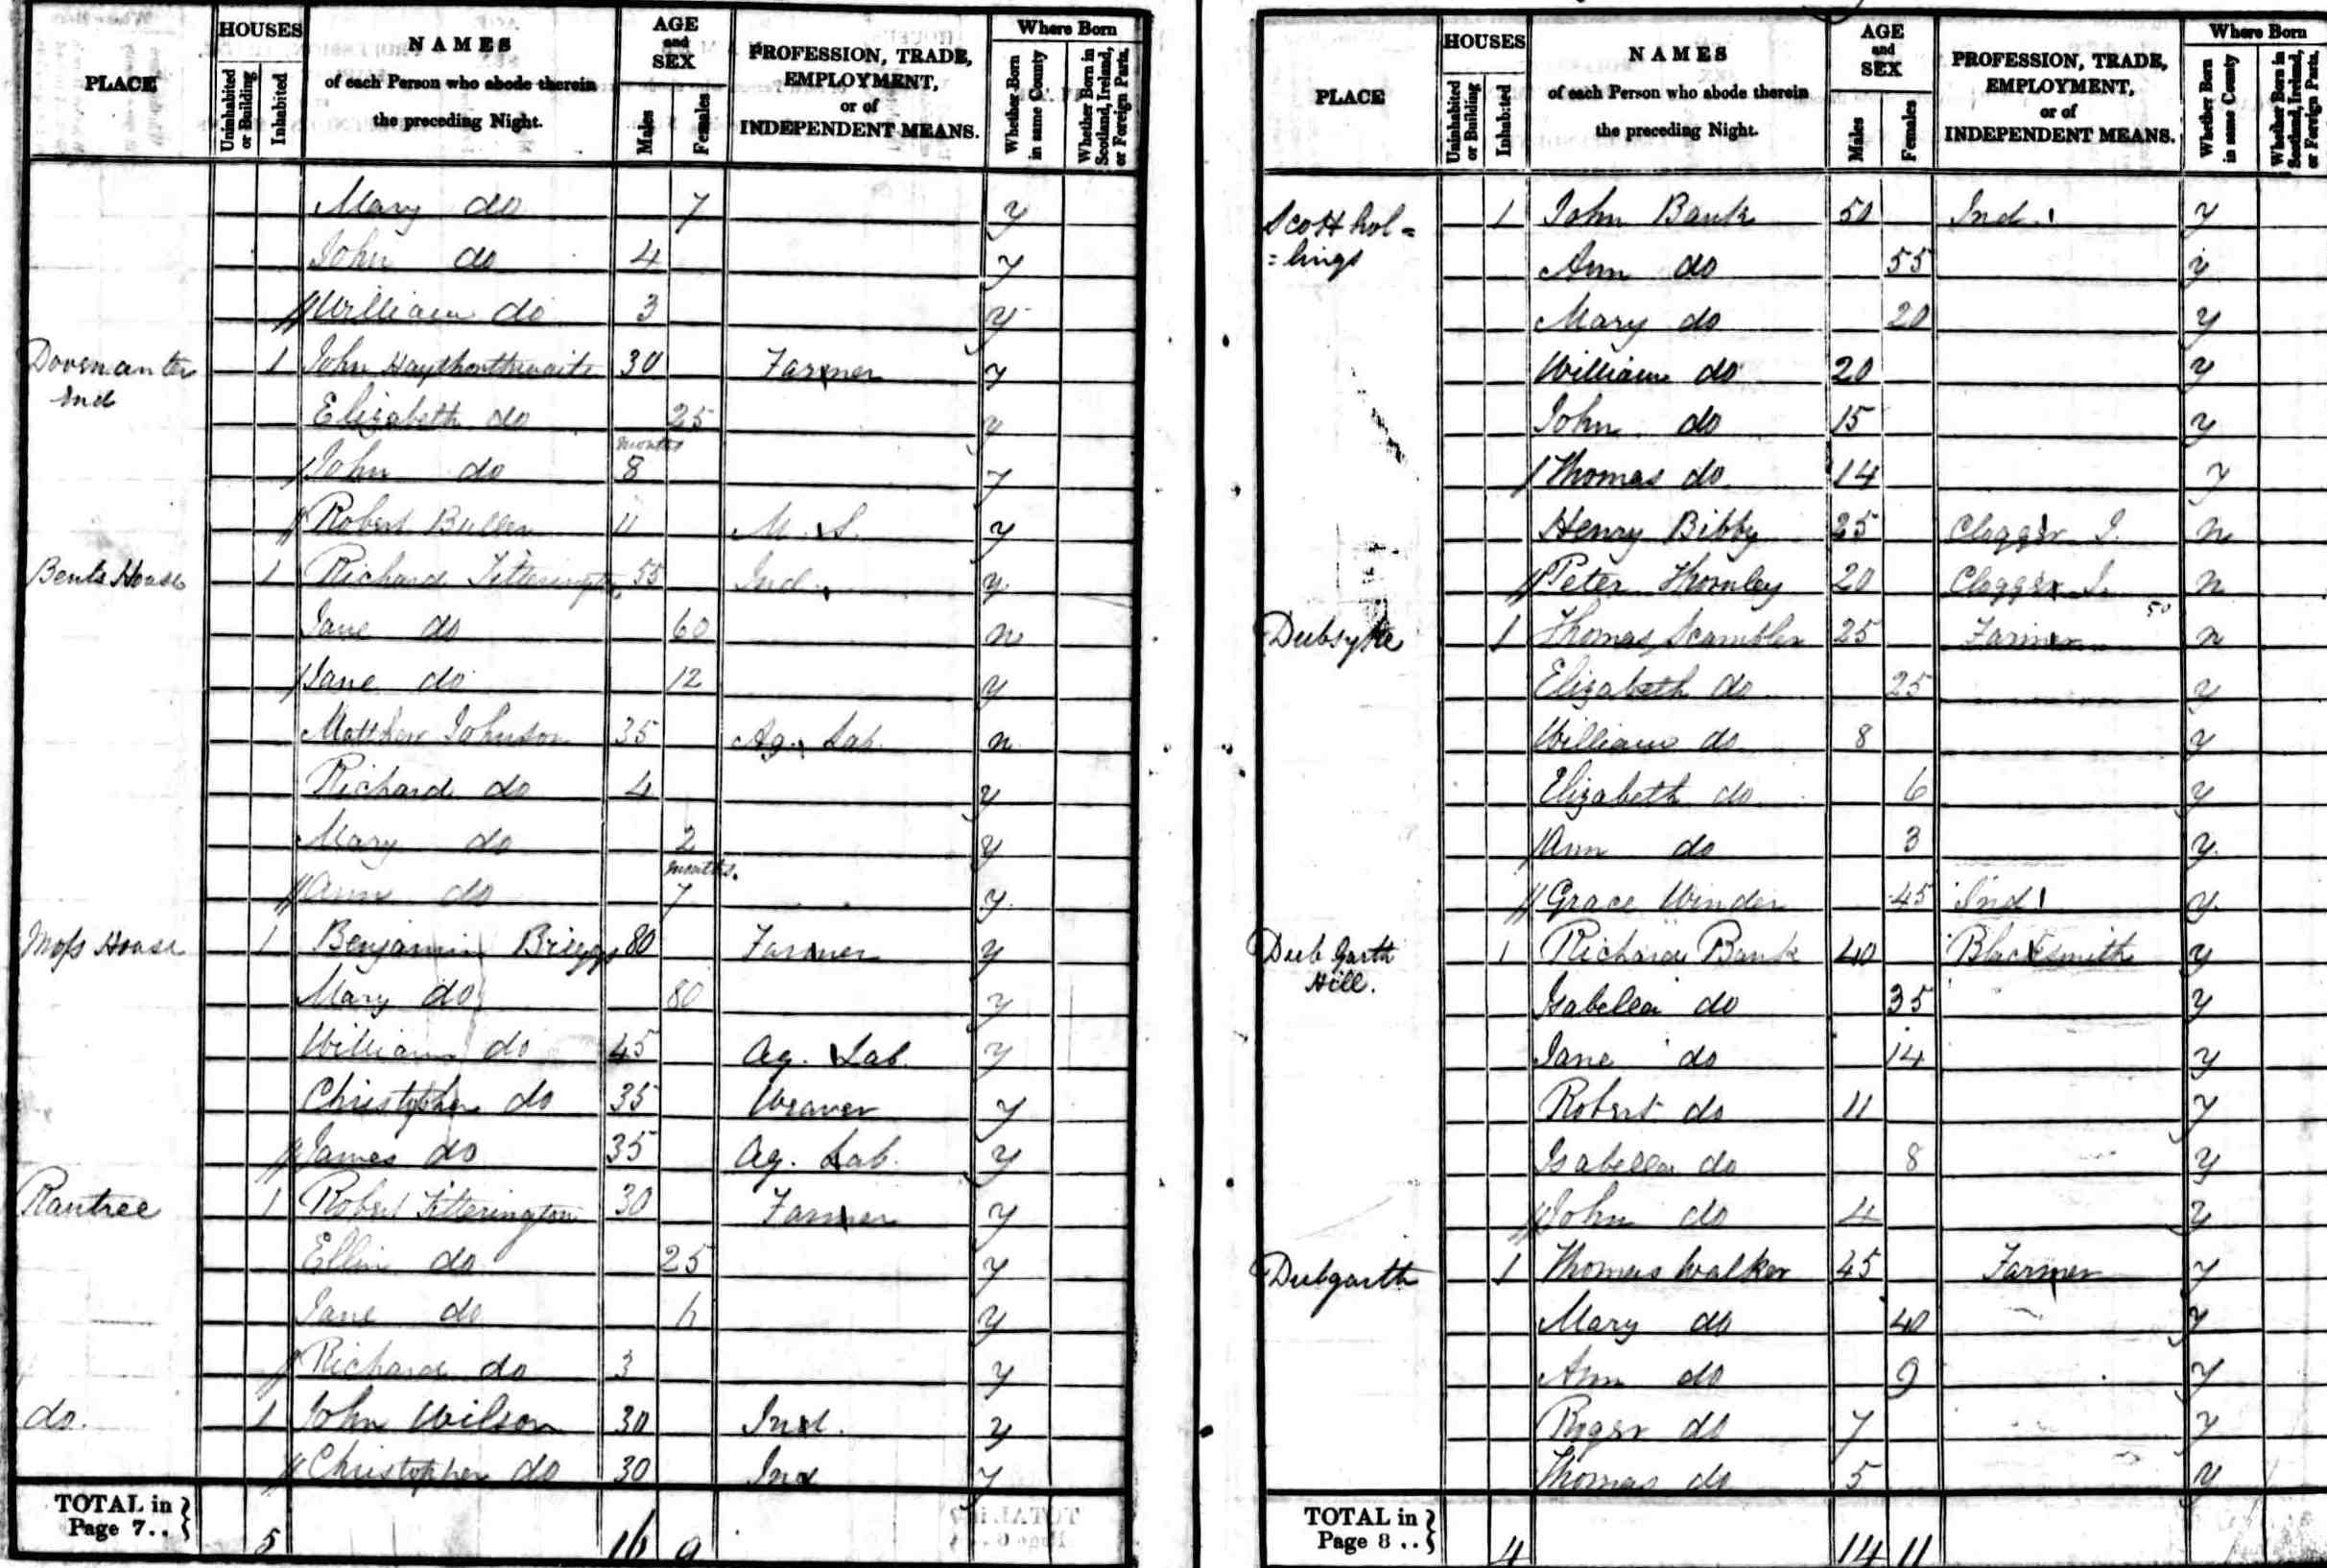 PLACE HOUSES Uninhabited or Building Inhabited NAMES of each Person who abode therein the preceding Night. AGE and SEX Males Females PROFESSION, TRADE, EMPLOYMENT, or of INDEPENDENT MEANS. Where Born Whether Born in same County Whether Born in Scotland, Ireland, or Foreign Parts.
Mary do 7 y
John do 4 y
William do 3 y
1 John Haythornthwaite 30 Farmer y
End
Elizabeth do 25 y
months
John do 8 y
Robert Buller 11 M. S. y
Bents House 1 Richard Titterington 55 Ind. y
Jane do 60 n
Jane do 12 y
Matthew Johnson 35 Ag. Lab. n
Richard do 4 y
Mary do 2 y
months.
Ann do 7 y
Moss House 1 Benjamin Briggs 80 Farmer y
Mary do 80 y
William do 45 Ag. Lab. y
Christopher do 35 Weaver y
James do 35 Ag. Lab. y
Rantree 1 Robert Titterington 30 Farmer y
Ellin do 25 y
Jane do y
Richard do 3 y
do. 1 John Wilson 30 Ind. y
Christopher do 30 Ind y
TOTAL in Page 7.. 5 16 9
PLACE HOUSES Uninhabited or Building Inhabited NAMES of each Person who abode therein the preceding Night. AGE and SEX Males Females PROFESSION, TRADE, EMPLOYMENT, or of INDEPENDENT MEANS. Where Born Whether Born in same County Whether Born in Scotland, Ireland, or Foreign Parts.
Scott hol= 1 John Bank 50 Ind. y
=lings Ann do 55 y
Mary do 20 y
William do 20 y
John do 15 y
Thomas do 14 y
Henry Bibby 25 Clogger J. n
Peter Thornley 20 Clogger J. n
50
Dubsyke 1 Thomas Scambler 25 Farmer n
Elizabeth do 25 y
William do 8 y
Elizabeth do 6 y
Ann do 3 y
Grace Winder 45 Ind y
Dub Garth 1 Richard Bank 40 Blacksmith y
Hill. Isabella do 35 y
Jane do 14 y
Robert do 11 y
Isabella do 8 y
John do 4 y
Dubgarth 1 Thomas Walker 45 Farmer y
Mary do 40 y
Ann do 9 y
Roger do 7 y
Thomas do 5 y
TOTAL in Page 8.. 4 14 11